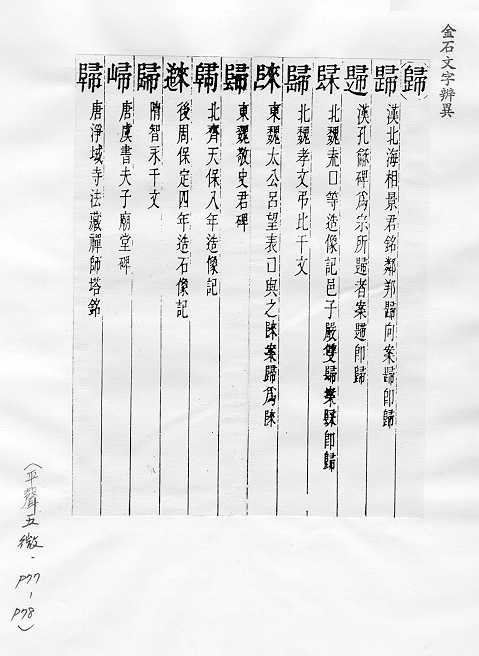 金石文字辨異
（歸）
歸 漢北海相景君銘鄰邦歸向案歸即歸
遈 漢孔龢碑爲宗所歸者案遈即歸
 北魏 口等造像記邑子嚴雙歸案 即歸
歸 北魏孝文弔比干文
 東魏太公呂望表口與之 案歸爲 
歸 東魏敬史君碑
 北齊天保八年造像記
 後周保定四年造石像記
歸 隋智永千文
 唐虞書夫子廟堂碑
歸 唐淨域寺法藏禪師塔銘
（平聲五微．P77－P78）